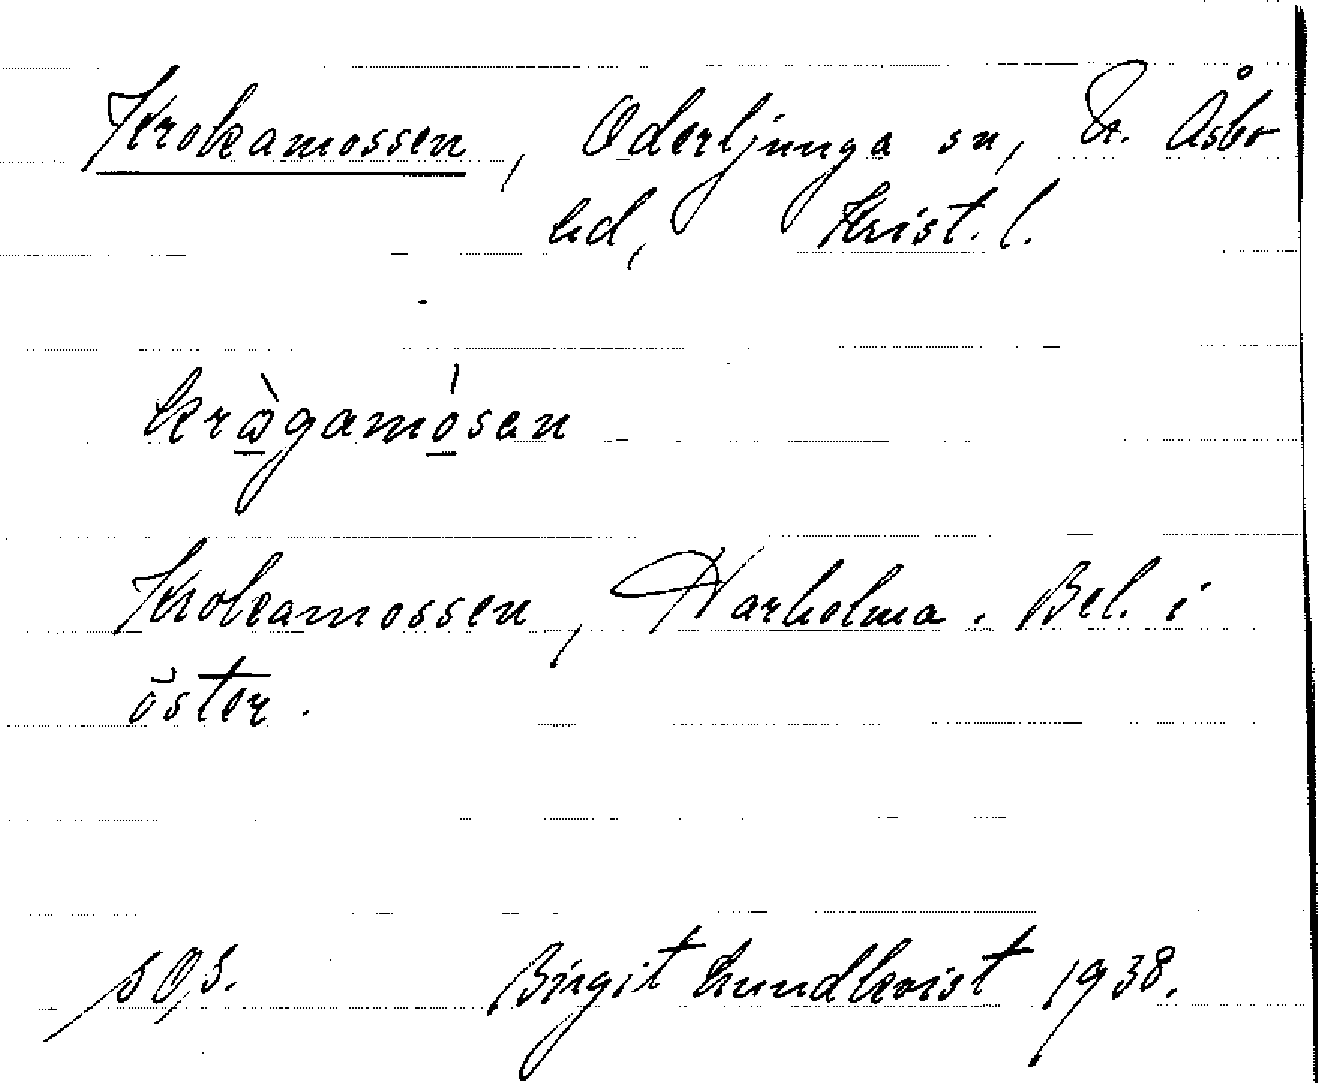 Krokamossen, Oderljunga sn, N. Åsbo
hd, Krist. l.
krågamosen
Krokamossen, Harholma. Bel. i
öster.
SOS. Birgit Lundkvist 1938.